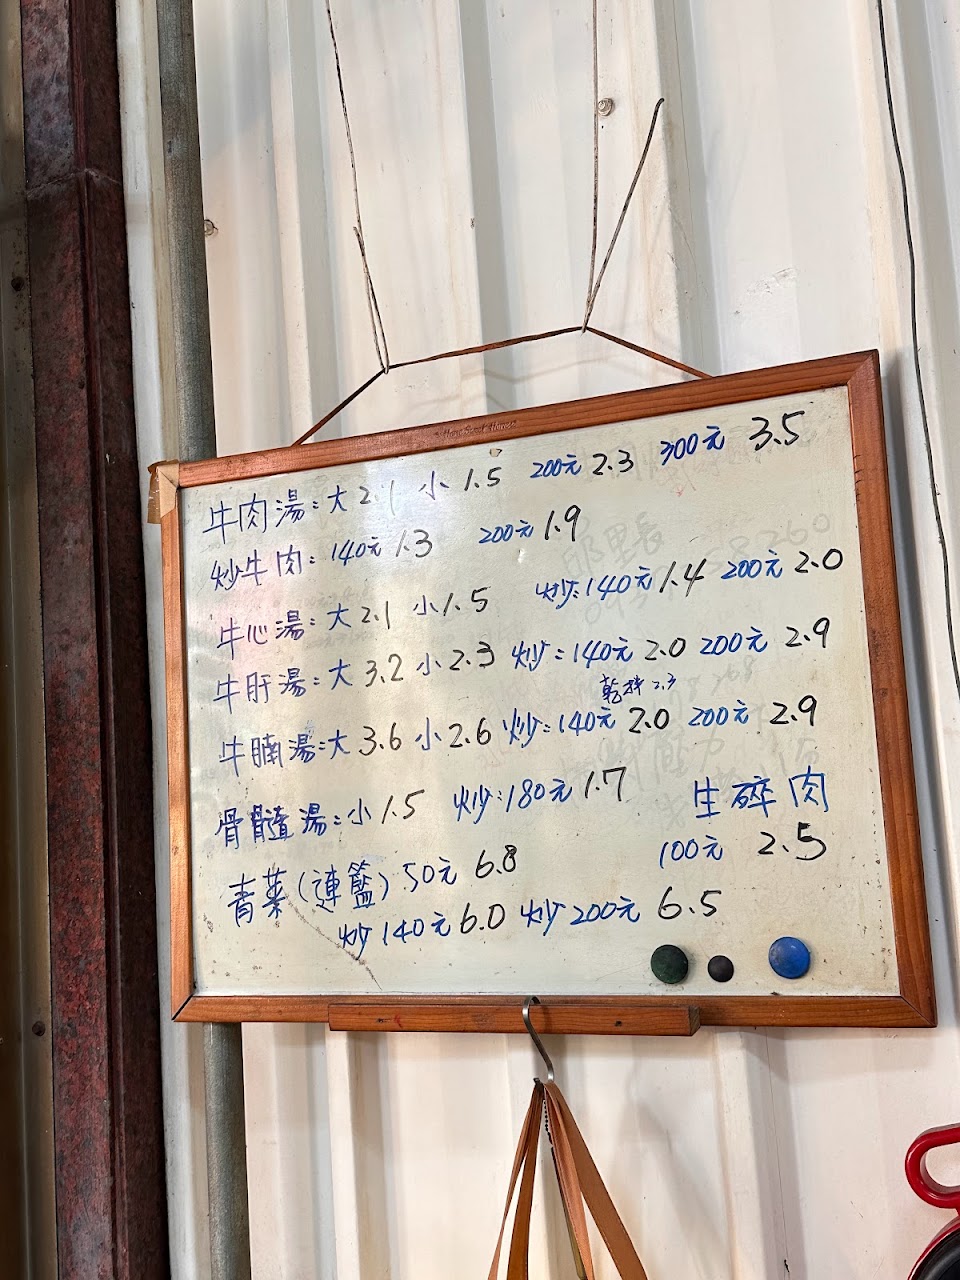 牛肉湯:大 2.1 小 1.5 200元 2.3 300元 3.5
炒牛肉:140元 1.3 200元 1.9
牛心湯:大 2.1 小 1.5 炒:140元 1.4 200元 2.0
牛肝湯:大 3.2 小 2.3 炒:140元 2.0 200元 2.9
乾拌 2.3
牛腩湯:大 3.6 小 2.6 炒:140元 2.0 200元 2.9
骨髓湯:小 1.5 炒:180元 1.7
生碎肉
100元 2.5
青菜(連籃)50元 6.8
炒140元 6.0 炒200元 6.5